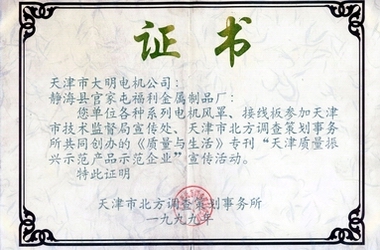 证书
天津市大明电机公司：
静海县官家屯福利金属制品厂：
您单位各种系列电机风罩、接线板参加天津
市技术监督局宣传处、天津市北方调查策划事务
所共同创办的《质量与生活》专刊“天津质量振
兴示范产品示范企业”宣传活动。
特此证明
天津市北方调查策划事务所
一九九九年